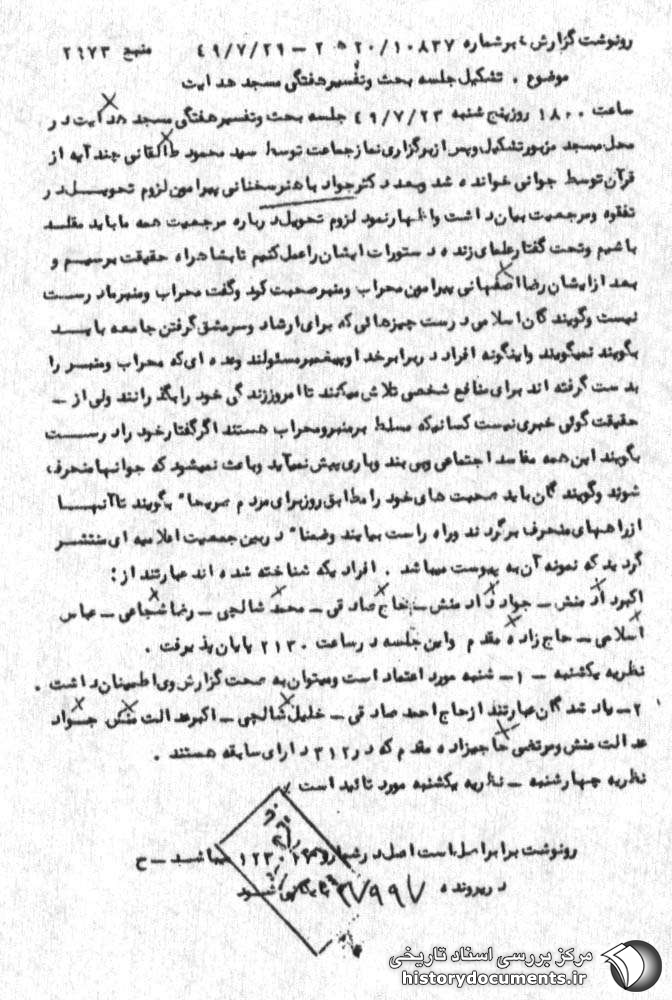 رونوشت گزارش خبر شماره ۲۰/۱۰۸۳۷ ﻫ ۲ – ۴۹/۷/۲۹ منبع ۲۹۷۳
موضوع . تشکیل جلسه بحث وتفسیر هفتگی مسجد هدایت
ساعت ۱۸۰۰ روز پنج شنبه ۴۹/۷/۲۳ جلسه بحث وتفسیر هفتگی مسجد هدایت در
محل مسجد مزبور تشکیل و پس از برگزاری نماز جماعت توسط سید محمود طالقانی چند آیه از
قرآن توسط جوانی خوانده شد وبعد دکتر جواد باهنر سخنانی پیرامون لزوم تحویــل در
تفقوه ومرجعیت بیان داشت واظهار نمود لزوم تحویل درباره مرجعیت همه ما باید مقلــد
باشیم وتحت گفتار علمای زنده دستورات ایشان را عمل کنیم تا بشاهراه حقیقت برسیم و
بعد از ایشان رضا اصفهانی پیرامون محراب ومنبر صحبت کرد وگفت محراب ومنبر ما درســت
نیست وگویندگان اسلامی درست چیزهائی که برای ارشاد وسرمشق گرفتن جامعه بایــد
بگویند نمیگویند واینگونه افراد در برابر خدا وپیغمبر مسئولند وعده ای که محراب ومنبــر را
بدست گرفته اند برای منافع شخصی تلاش میکنند تا امروز زندگی خود را بگذرانند ولی از –
حقیقت گوئی خبری نیست کسانیکه مسلط بر منبر ومحراب هستند اگر گفتار خود را درســت
بگویند این همه مفاسد اجتماعی وبی بند وباری پیش نمیآید وباعث نمیشود که جوانها منحرف
شوند وگویندگان باید صحبت های خود را مطابق روز برای مردم صریحا" بگویند تا آنهــا
از راههای منحرف برگردند وراه راست بیابند وضمنا" در بین جمعیت اعلامیه ای منتشــر
گردید که نمونه آن به پیوست میباشد . افرادیکه شناخته شده اند عبارتند از :
اکبر داد منش – جواد داد منش – حاج صادقی – محمد شالچی – رضا شجاعی – عباس
اسلامی – حاج زاده مقدم واین جلسه در ساعت ۲۱۳۰ پایان پذیرفت .
نظریه یکشنبه – ۱– شنبه مورد اعتماد است ومیتوان به صحت گزارش وی اطمینان داشت .
۲– یاد شدگان عبارتند از حاج احمد صادقی – خلیل شالچی – اکبر عدالت منش جــواد
عدالت منش ومرتضی حاجیزاده مقدم که در ۳۱۲ دارای سابقه هستند .
نظریه چهارشنبه – نظریه یکشنبه مورد تائید است
رونوشت برابر اصل است اصل در شماره میباشــد – ح
در پرونده ۳۷۹۹۷ بایگانی شــود
مرکز بررسی اسناد تاریخی
historydocuments.ir